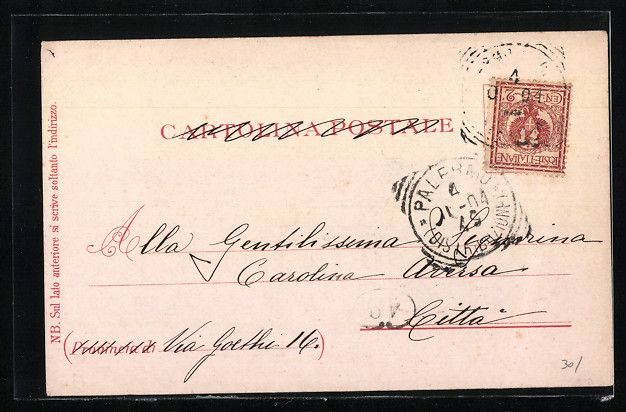 CARTOLINA POSTALE
POSTE ITALIANE
CENT. 2
4
04
PALERMO
4
04
Alla Gentilissima Signorina
Carolina Aversa
Città
(Provincia di Via Goethe 16.)
NB. Sul lato anteriore si scrive soltanto l'indirizzo.
30/